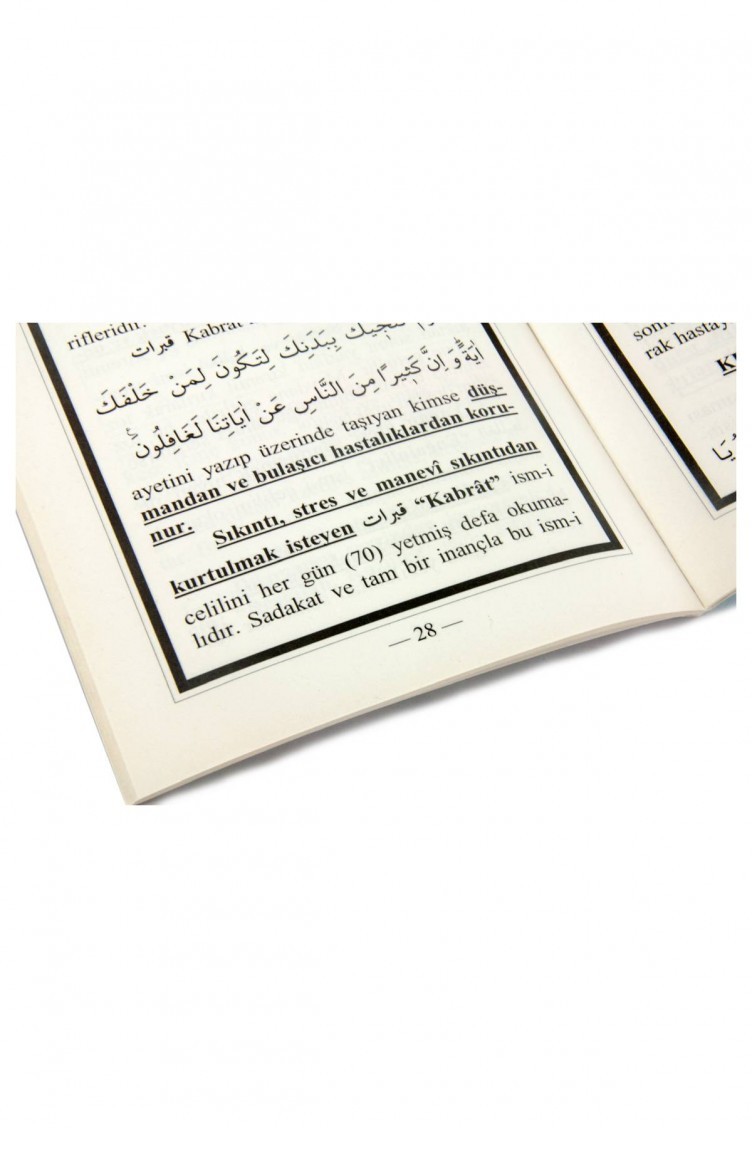 rifleridir.
قبرات Kabrât
نُنَجّ۪يكَ بِبَدَنِكَ لِتَكُونَ لِمَنْ خَلْفَكَ
اٰيَةًۜ وَاِنَّ كَث۪يرًا مِنَ النَّاسِ عَنْ اٰيَاتِنَا لَغَافِلُونَ
ayetini yazıp üzerinde taşıyan kimse düş-
mandan ve bulaşıcı hastalıklardan koru-
nur. Sıkıntı, stres ve manevî sıkıntıdan
kurtulmak isteyen قبرات “Kabrât” ism-i
celilini her gün (70) yetmiş defa okuma-
lıdır. Sadakat ve tam bir inançla bu ism-i
— 28 —
rak hasta